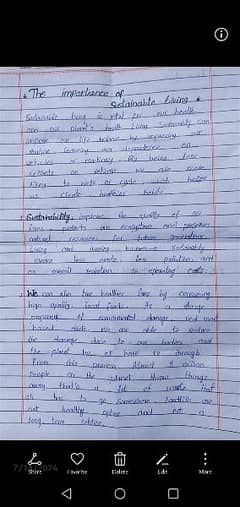 The importance of
Sustainable Living
Sustainable living is vital for our health
and our planet's health. Living Sustainably can
improve our life by improving our
our dependence on
vehicles or
reliant on vehicles we are more
likely to walk or cycle which helps
us create healthier
Sustainability improve the quality of our
lives, protects our ecosystem and preserves
natural resources for future generations
living and Sustainably
means less waste, less pollution and
an overall reduction in operating costs.
We can also live healthier lives by consuming
high quality, local foods. As a large
proponent of environmental damage, red meat
based diets. We are able to reduce
the damage done to our bodies and
the planet we at home go through
from this process. Almost 8 million
people on the planet throw things
away that's a lot of waste that
has to go somewhere landfills are
not healthy option and not a
long term solution.
7/1 /2024
Share
Favorite
Delete
Edit
More